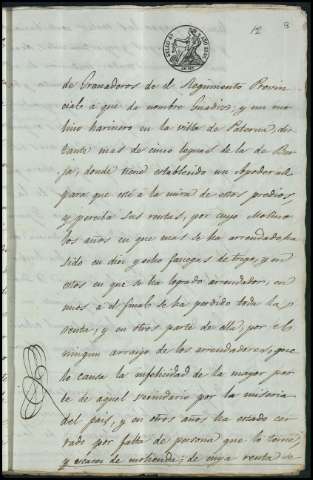 12 3
de Granaderos de el Regimiento Provin
ciale a que da nombre Guadix, y un mo
lino harinero en la villa de Paterna, dis
tante mas de cinco leguas de la de Ber
ja, donde tiene establecido un Apoderado
para que esté a la mira de estos predios,
y perciba sus rentas, por cuyo Molino
los años en que mas se ha arrendado ha
sido en diez y ocho fanegas de trigo, y en
estos en que se ha logrado arrendador, en
unos a el final se ha perdido toda la
renta, y en otros parte de ella, por el
ningun arraigo de los arrendadores, que
lo causa la infelicidad de la mayor par
te de aquel vecindario por la miseria
del pais, y en otros años ha estado cer
rado por falta de persona que lo tome,
y escases de molienda; de cuya renta se